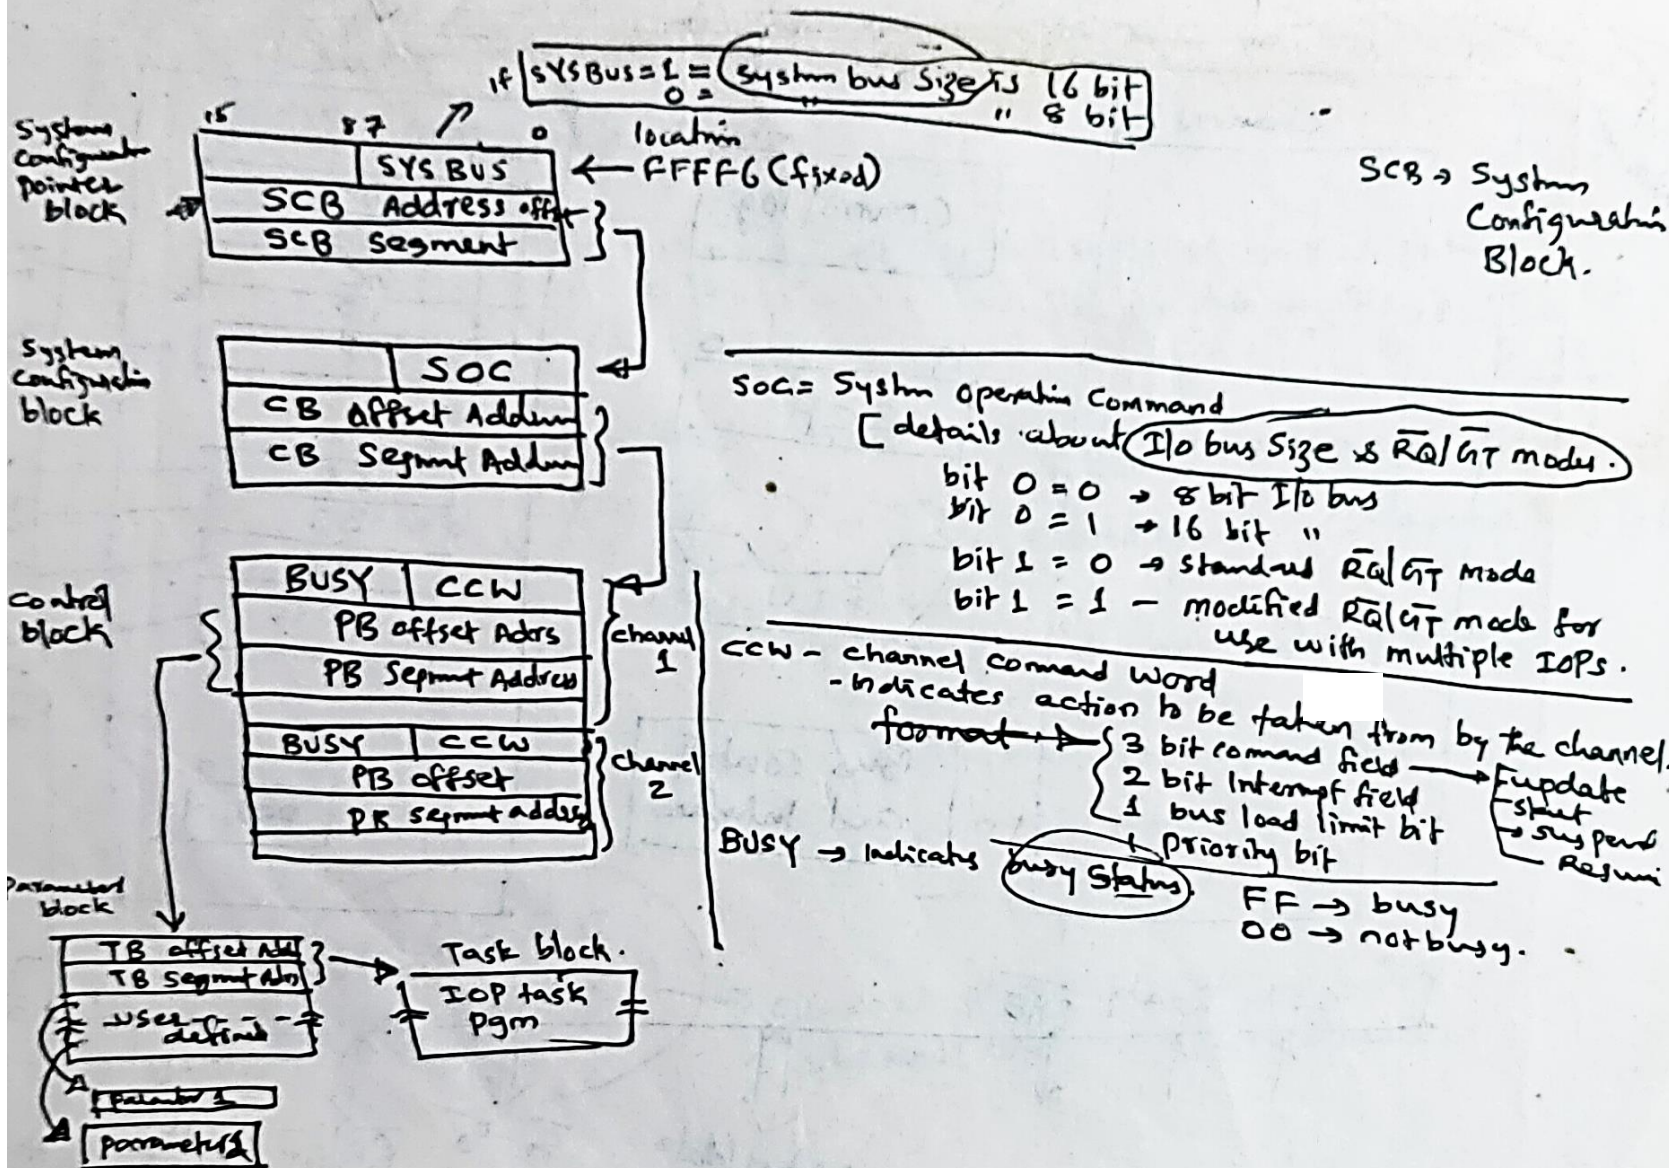 if SYSBUS=1 = System bus Size is 16 bit
0 = " " 8 bit
System
Configuration
pointer
block
15 8 7 0
location
SYS BUS
← FFFF6 (fixed)
SCB Address offset
SCB Segment
SCB → System
Configuration
Block.
System
Configuration
block
SOC
CB offset Address
CB Segment Address
SOC = System operation Command
[details about I/o bus Size & RQ/GT modes.
bit 0 = 0 → 8 bit I/o bus
bit 0 = 1 → 16 bit "
bit 1 = 0 → standard RQ/GT mode
bit 1 = 1 — modified RQ/GT mode for
use with multiple IOPs.
Control
block
BUSY CCW
PB offset Adrs
PB Segment Address
channel
1
BUSY CCW
PB offset
PB segment address
channel
2
CCW - channel command Word
- indicates action to be taken from by the channel.
format → 3 bit command field → update
2 bit Interrupt field start
1 bus load limit bit → suspend
1 priority bit Resume
BUSY → Indicates busy Status.
FF → busy
00 → not busy.
Parameter
block
TB offset Add
TB Segment Adrs
user
defined
Task block.
IOP task
pgm
parameter 1
parameter2